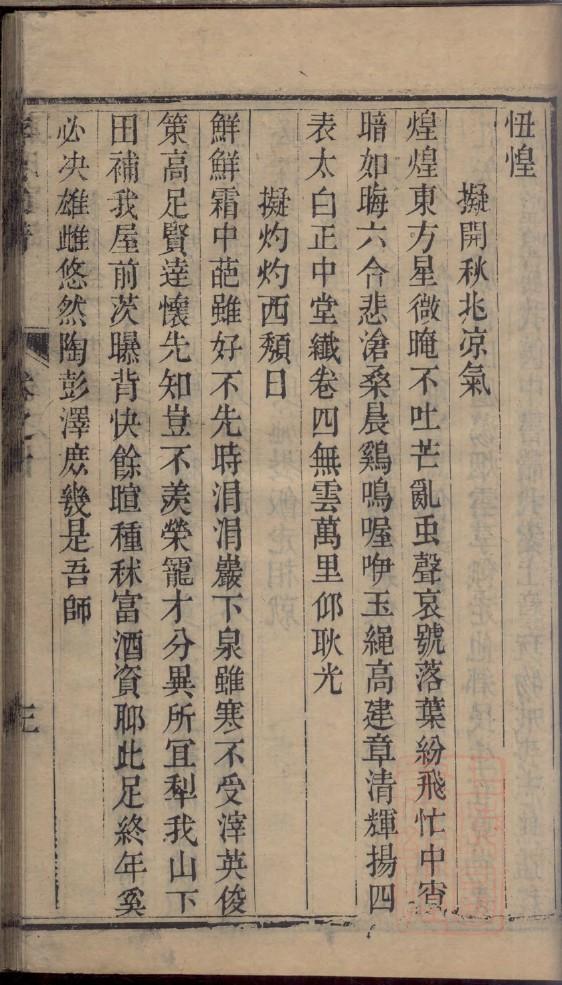 忸惶
擬開秋兆凉氣
煌煌東方星微晻不吐芒亂虫聲哀號落葉紛飛忙中宵
暗如晦六合悲滄桑晨鷄鳴喔咿玉繩高建章清輝揚四
表太白正中堂纖卷四無雲萬里仰耿光
擬灼灼西頹日
鮮鮮霜中葩雖好不先時涓涓巖下泉雖寒不受滓英俊
策高足賢達懷先知豈不羨榮寵才分異所宜犁我山下
田補我屋前茨曝背快餘暄種秫富酒資聊此足終年奚
必决雄雌悠然陶彭澤庶幾是吾師
卷之十
三